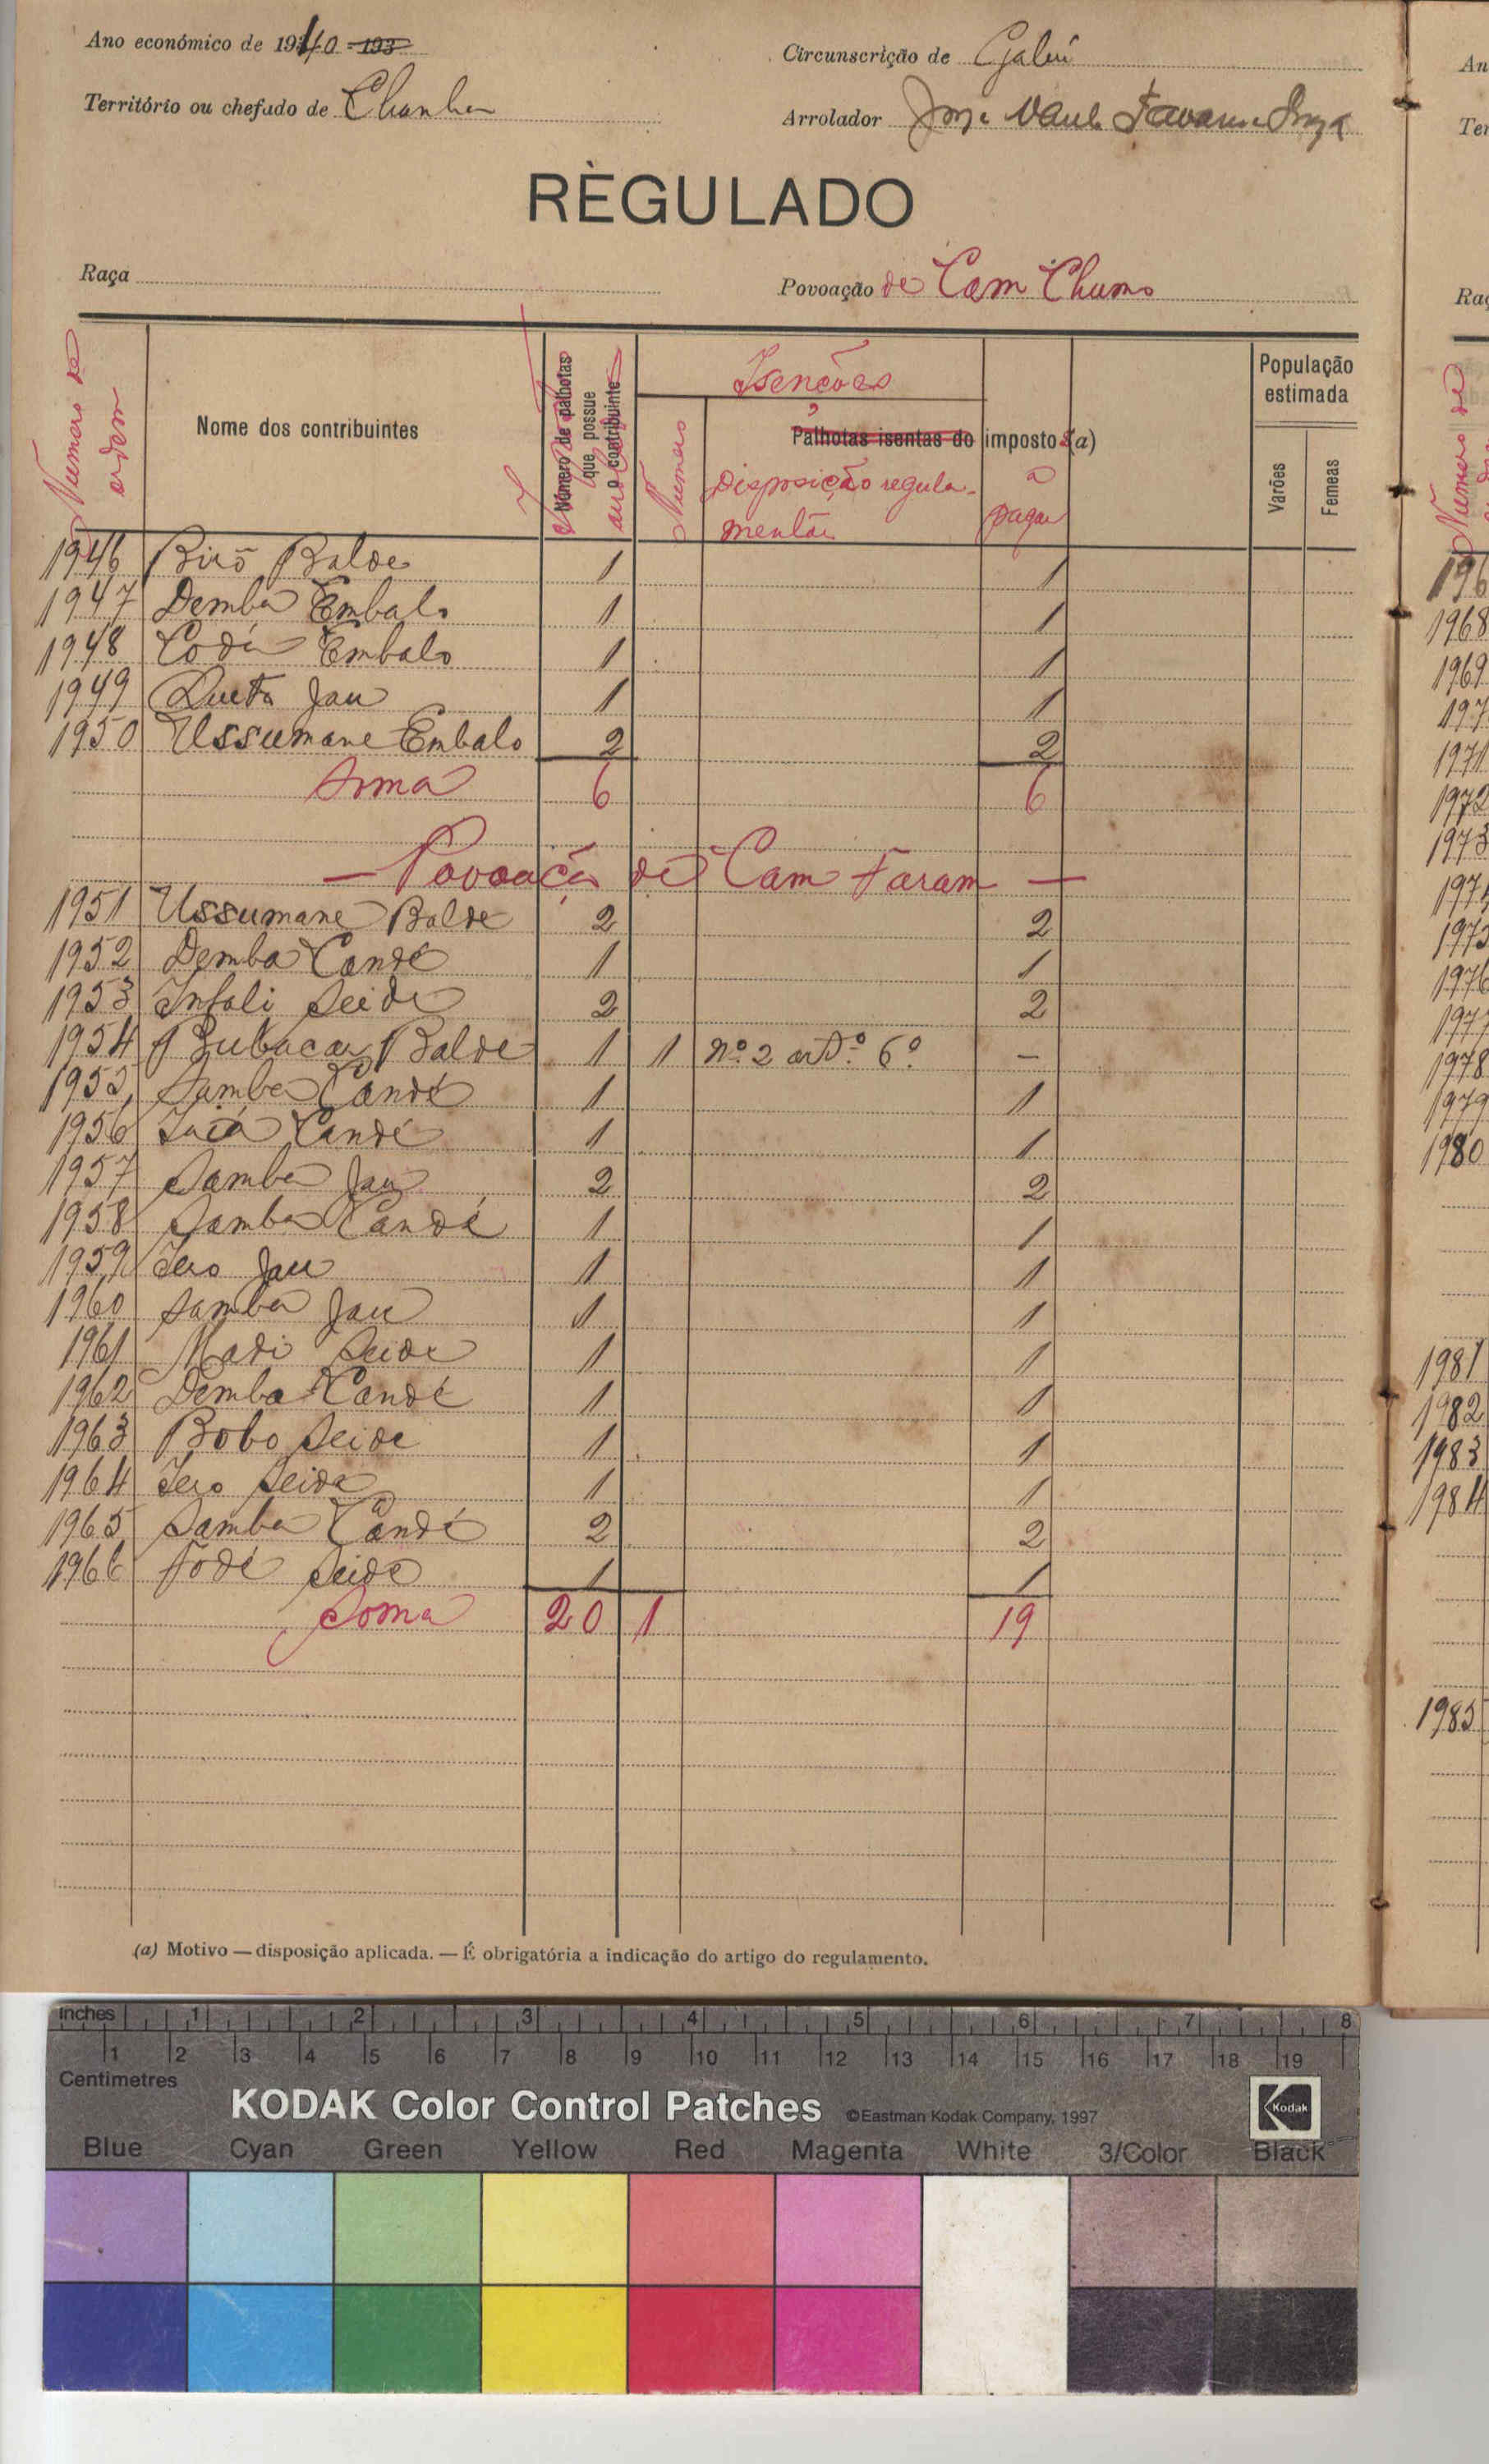 Ano económico de 1940 -193
Circunscrição de Gabú
Território ou chefado de Chanha
Arrolador
RÈGULADO
Raça
Povoação de Cam Chumo
Numero de ordem
Nome dos contribuintes
Número de palhotas que possue o contribuinte
Isenções
Numero
Palhotas isentas do imposto (a)
Disposição regulamentar
a pagar
População estimada
Varões
Femeas
1946 Birõ Balde 1 1
1947 Demba Embalo 1 1
1948 Codé Embalo 1 1
1949 Queta Jau 1 1
1950 Ussumane Embalo 2 2
Soma 6 6
— Povoação de Cam Faram —
1951 Ussumane Balde 2 2
1952 Demba Candé 1 1
1953 Infali Seide 2 2
1954 Bubacar Balde 1 1 nº 2 artº 6º –
1955 Samba Candé 1 1
1956 Candé 1 1
1957 Samba Jau 2 2
1958 Samba Candé 1 1
1959 Iero Jau 1 1
1960 Samba Jau 1 1
1961 Madi Seide 1 1
1962 Demba Candé 1 1
1963 Bobo Seide 1 1
1964 Iero Seide 1 1
1965 Samba Candé 2 2
1966 Fodé Seide 1 1
Soma 20 1 19
(a) Motivo — disposição aplicada. — É obrigatória a indicação do artigo do regulamento.
An
Ter
Raç
Numero de
196
1968
1969
197
1971
1972
1973
197
197
1976
1977
1978
1979
1980
1981
1982
1983
1984
1985
inches 1 2 3 4 5 6 7 8
1 2 3 4 5 6 7 8 9 10 11 12 13 14 15 16 17 18 19
Centimetres
KODAK Color Control Patches ©Eastman Kodak Company, 1997 Kodak
Blue Cyan Green Yellow Red Magenta White 3/Color Black